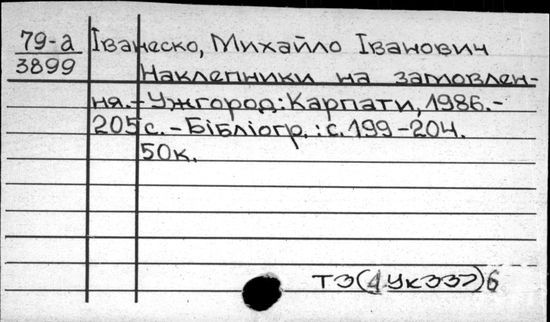 79-а
3899
Іванеско, Михайло Іванович
Наклепники на замовлен-
ня.-Ужгород:Карпати,1986.-
205с.-Бібліогр.:с.199-204.
50к.
Т3(4Ук337)6